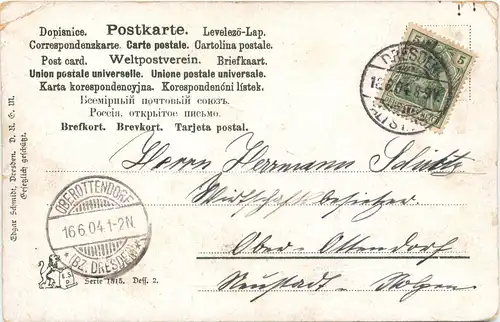 Dopisnice. Postkarte. Levelező-Lap.
Correspondenzkarte. Carte postale. Cartolina postale.
Post card. Weltpostverein. Briefkaart.
Union postale universelle. Unione postale universale.
Karta korespondencyjna. Korespondenóni lístek.
Всемірный почтовый союзъ.
Россія. открытое письмо.
Brefkort. Brevkort. Tarjeta postal.
5 5
DRESDEN
16.6.04. 8-9V.
ALTST.
Edgar Schmidt, Dresden. D. R. G. M.
Gesetzlich geschützt.
Herrn Herrmann Schütz
Wirtschaftsbesitzer
Ober-Ottendorf
Neustadt-Stolpen
OBEROTTENDORF
16.6.04.1-2N.
*(BZ. DRESDEN)*
E.S.
D.
Serie 1515. Dess. 2.